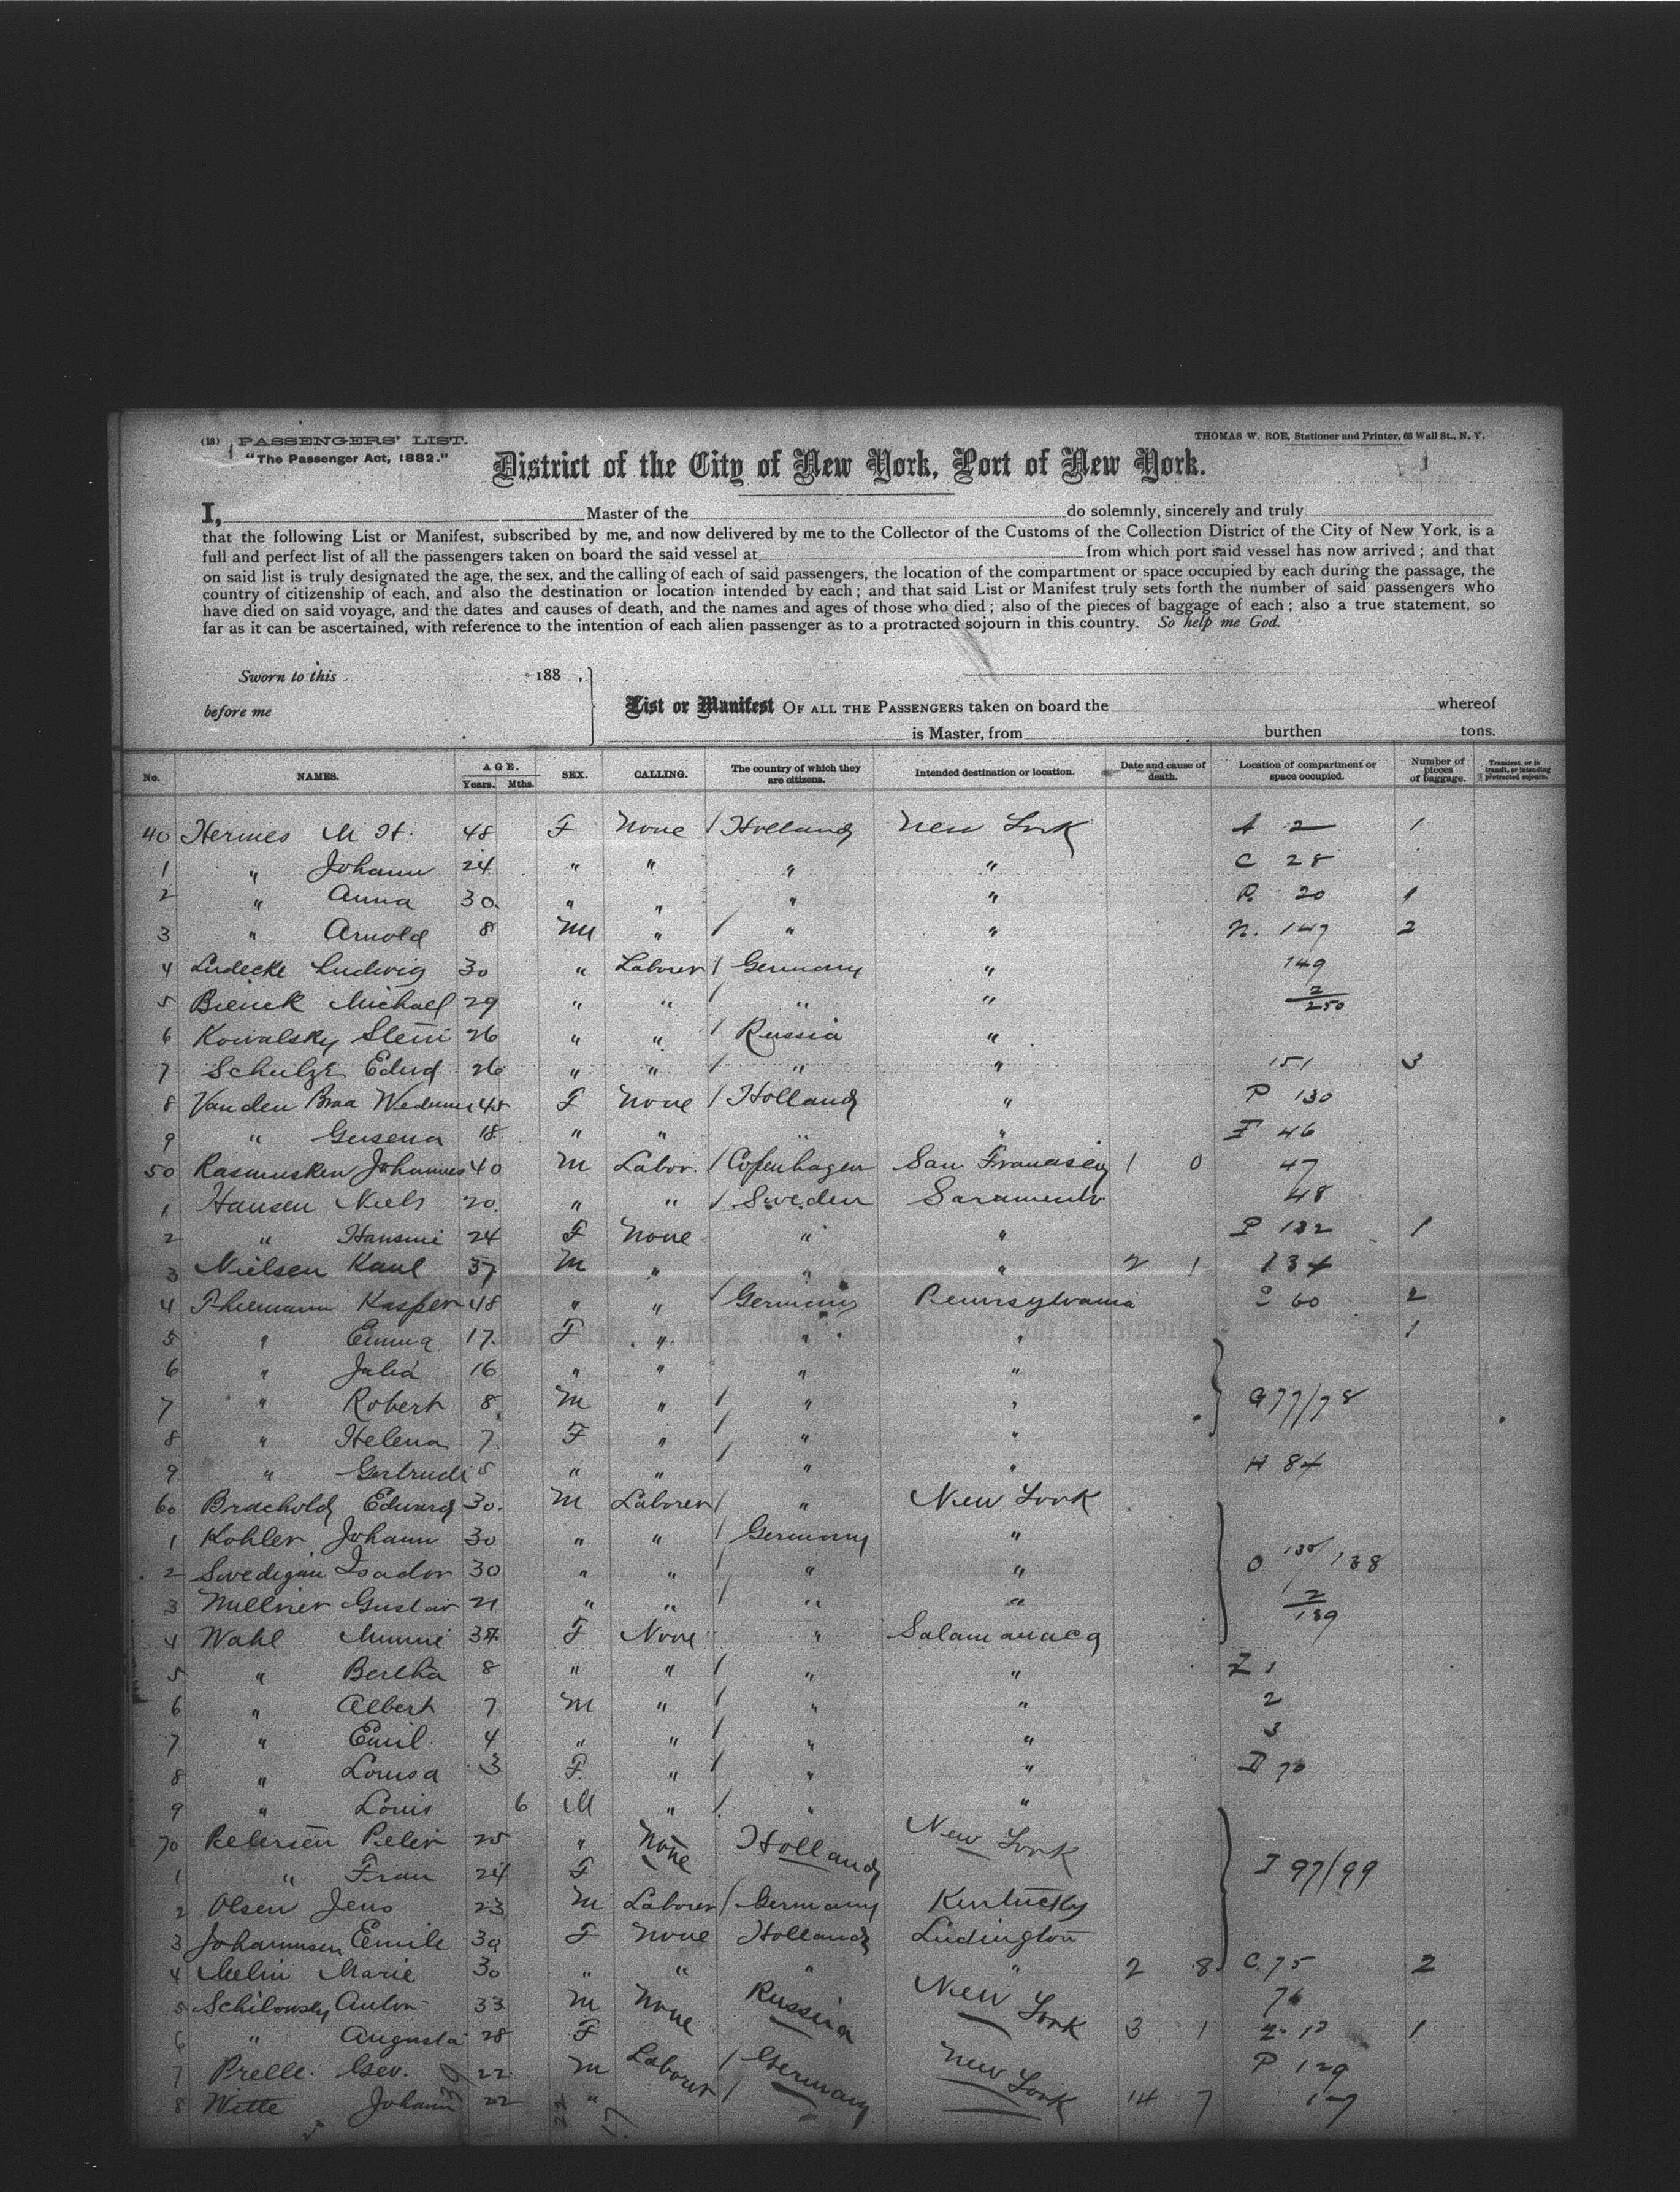 (18) PASSENGERS' LIST.
"The Passenger Act, 1882."
THOMAS W. ROE, Stationer and Printer, 63 Wall St., N. Y.
District of the City of New York, Port of New York.
I, Master of the do solemnly, sincerely and truly
that the following List or Manifest, subscribed by me, and now delivered by me to the Collector of the Customs of the Collection District of the City of New York, is a
full and perfect list of all the passengers taken on board the said vessel at from which port said vessel has now arrived; and that
on said list is truly designated the age, the sex, and the calling of each of said passengers, the location of the compartment or space occupied by each during the passage, the
country of citizenship of each, and also the destination or location intended by each; and that said List or Manifest truly sets forth the number of said passengers who
have died on said voyage, and the dates and causes of death, and the names and ages of those who died; also of the pieces of baggage of each; also a true statement, so
far as it can be ascertained, with reference to the intention of each alien passenger as to a protracted sojourn in this country. So help me God.
Sworn to this 188 ,
before me
List or Manifest OF ALL THE PASSENGERS taken on board the whereof
is Master, from burthen tons.
No. NAMES. AGE. Years. Mths. SEX. CALLING. The country of which they are citizens. Intended destination or location. Date and cause of death. Location of compartment or space occupied. Number of pieces of baggage. Transient, or in transit, or intending protracted sojourn.
40 Hermes M H. 48 F None / Holland New York A 2 1
1 " Johann 24 " " " " C 28
2 " Anna 30 " " " " P. 20 1
3 " Arnold 8 M " / " " N. 147 2
4 Ludecke Ludwig 30 " Laborer / Germany " 149
5 Michael 29 " " / " " 2/250
6 Kowalsky 26 " " / Russia "
7 Schulze Edwd 26 " " / " " 151 3
8 Van den Braa 45 F None / Holland " P 130
9 " Gersena 18 " " " " F 46
50 Rasmussen Johannes 40 M Labor. / Copenhagen San Francisco 1 0 47
1 Hansen Niels 20 " " / Sweden Saramento 48
2 " Hansine 24 F None " " P 132 1
3 Nielsen Kaul 37 M " " " 2 1 134
4 Thiemann Kasper 48 " " / Germany Pennsylvania 60 2
5 " Emma 17 F " " " 1
6 " Julia 16 " " " "
7 " Robert 8 M " / " " G 77/78
8 " Helena 7 F " / " "
9 " Gertrude 5 " " / " " H 84
60 Brachold Edward 30 M Laborer / " New York
1 Kohler Johann 30 " " / Germany "
2 Isador 30 " " / " " O 135/138
3 Muellner Gustav 21 " " / " " 2/139
4 Wahl Minnie 37 F None " Salamanaca
5 " Bertha 8 " " / " " Z 1
6 " Albert 7 M " / " " 2
7 " Emil 4 " " / " " 3
8 " Louisa 3 F " / " " D 70
9 " Louis 6 M " / " "
70 Petersen Peter 25 " None Holland New York
1 " Frau 24 F I 97/99
2 Olsen Jens 23 M Laborer / Germany Kentucky
3 Johannesen Emile 39 F None Holland Ludington
4 Melin Marie 30 " " " " 2 8 C. 75 2
5 Schilowsky Anton 33 M None Russia New York 76
6 " Augusta 28 F 3 1 1
7 Prelle Geo. 22 M Laborer / Germany New York P 129
8 Witte Johann 22 " / 14 7